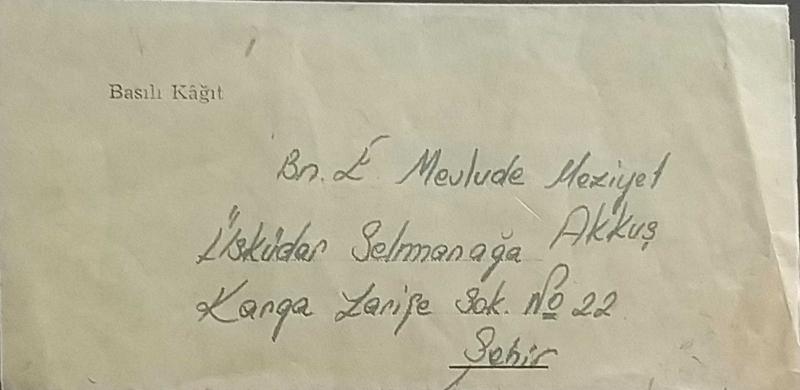 Basılı Kâğıt
Bn. E Mevlude Meziyet
Akkuş
Üsküdar Selmanağa
Karga Zarife Sok. No 22
Şehir